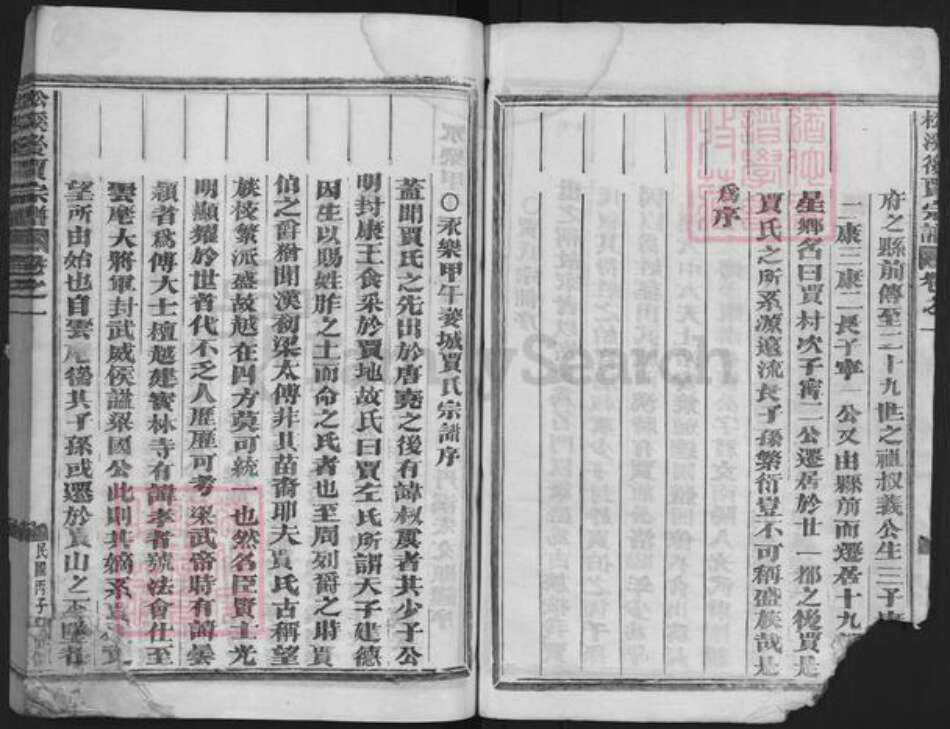 府之縣前傳至二十九世之
叔義公生三子
一康三康二長子寧一公又由縣前而遷居十九
星鄉名曰賈村次子寗二公遷居於廿一都之後賈是
賈氏之所系源遠流長子孫繁衍豈不可稱盛族哉是
為序
〇永樂甲午婺城賈氏宗譜序
蓋聞賈氏之先出於唐堯之後有諱叔虞者其少子公
明封康王食采於賈地故氏曰賈左氏所謂天子建德
因生以賜姓胙之土而命之氏者也至周列爵之時賈
伯之爵稽聞漢初梁太傅非其苗裔耶夫賈氏古稱望
族枝繁派盛故越在四方莫可統一也然名臣賢士光
明顯耀於世者代不乏人歷歷可考梁武帝時有諱曇
穎者為傅大士檀越建寳林寺有諱孝者號法會仕至
雲麾大將軍封武威侯諡梁國公此則其嫡系
望所由始也自雲麾後其子孫或遷於賈山之
松溪後賈宗譜
卷之一
民國丙子